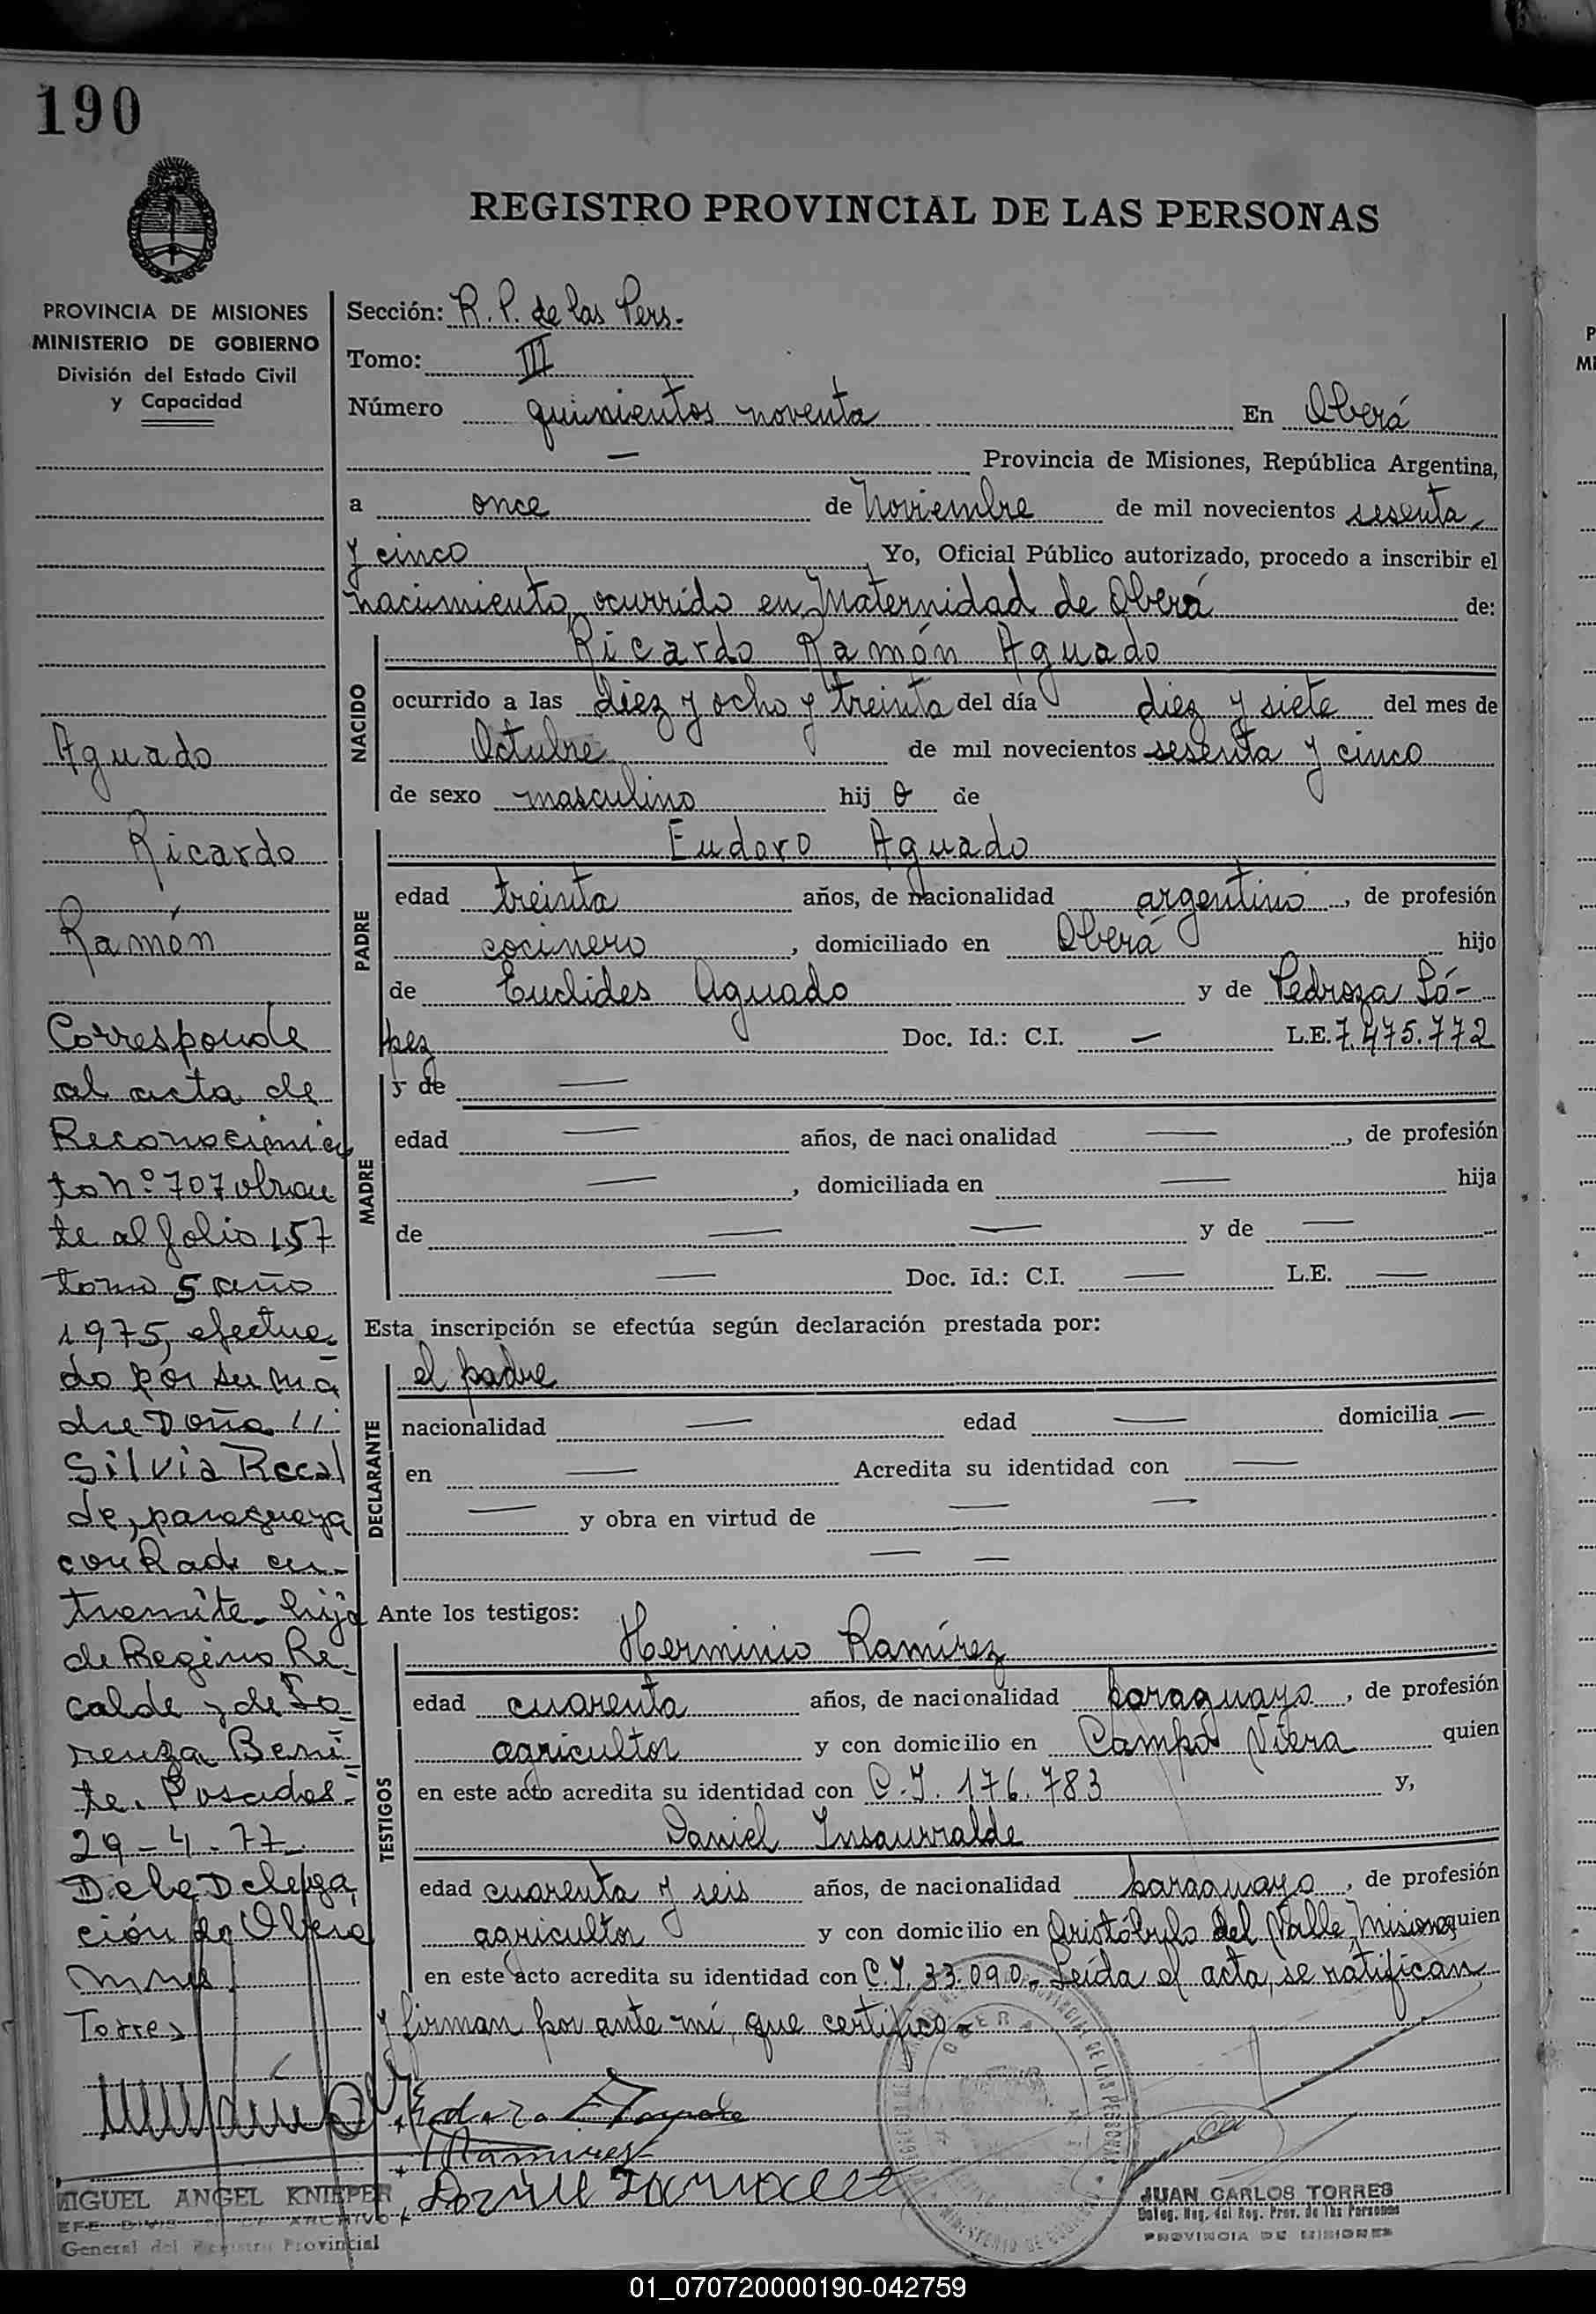 190
REGISTRO PROVINCIAL DE LAS PERSONAS
PROVINCIA DE MISIONES
MINISTERIO DE GOBIERNO
División del Estado Civil
y Capacidad
Aguado
Ricardo
Ramón
Corresponde
al acta de
Reconocimien
to nº 707 obran
te al folio 157
tomo 5 año
1975, efectua
do por su ma
dre Doña
Silvia Recal
de, paraguaya
con Rad. en
tramite hija
de Regino Re
calde y de Lo
renza Beni
te. Posadas
29-4-77.
De la Delega
ción de Oberá
Mnes.
Torres
MIGUEL ANGEL KNIEPER
General del Registro Provincial
Sección: R. P. de las Pers.
Tomo: III
Número quinientos noventa En Oberá
Provincia de Misiones, República Argentina,
a once de Noviembre de mil novecientos sesenta
y cinco Yo, Oficial Público autorizado, procedo a inscribir el
nacimiento, ocurrido en Maternidad de Oberá de:
NACIDO
Ricardo Ramón Aguado
ocurrido a las diez y ocho y treinta del día diez y siete del mes de
Octubre de mil novecientos sesenta y cinco
de sexo masculino hij o de
PADRE
Eudoro Aguado
edad treinta años, de nacionalidad argentino, de profesión
cocinero, domiciliado en Oberá hijo
de Euclides Aguado y de Pedroza Ló-
pez Doc. Id.: C.I. — L.E. 7.475.772
MADRE
y de —
edad — años, de nacionalidad —, de profesión
—, domiciliada en — hija
de — — y de —
— Doc. Id.: C.I. — L.E. —
Esta inscripción se efectúa según declaración prestada por:
DECLARANTE
el padre
nacionalidad — edad — domicilia —
en — Acredita su identidad con —
— y obra en virtud de — —
— —
Ante los testigos:
TESTIGOS
Herminio Ramírez
edad cuarenta años, de nacionalidad paraguayo, de profesión
agricultor y con domicilio en Campo Viera quien
en este acto acredita su identidad con C.I. 176.783 y,
Daniel Insaurralde
edad cuarenta y seis años, de nacionalidad paraguayo, de profesión
agricultor y con domicilio en Aristóbulo del Valle, Misiones quien
en este acto acredita su identidad con C.I. 33.090.- Leída el acta, se ratifican
y firman por ante mí, que certifico.-
Ramires
JUAN CARLOS TORRES
Deleg. Reg. del Reg. Prov. de las Personas
PROVINCIA DE MISIONES
01_070720000190-042759